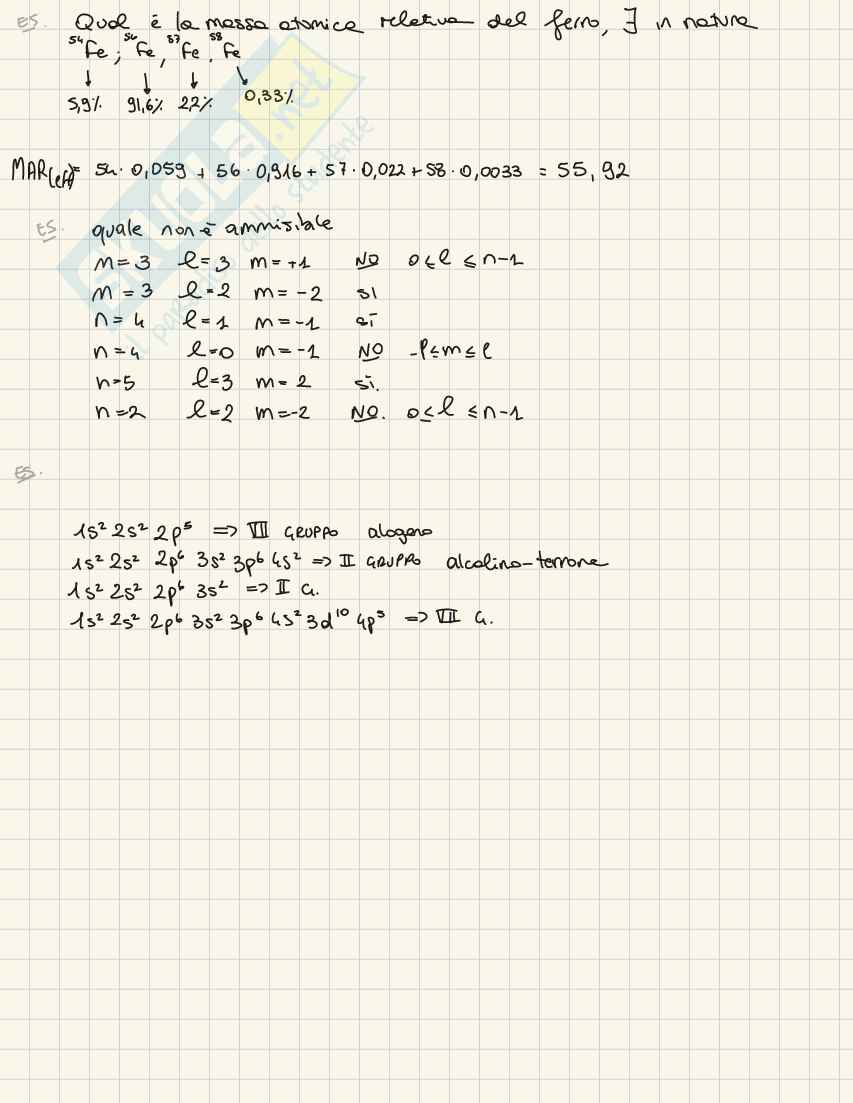 ES. Qual è la massa atomica relativa del ferro, ∃ in natura
⁵⁴Fe ; ⁵⁶Fe , ⁵⁷Fe , ⁵⁸Fe
5,9% 91,6% 2,2% 0,33%
MAR(Fe)= 54 · 0,059 + 56 · 0,916 + 57 · 0,022 + 58 · 0,0033 = 55,92
ES. quale non è ammissibile
n=3 l=3 m=+1 NO 0≤l ≤n-1
n=3 l=2 m=-2 SI
n=4 l=1 m=-1 SÌ
n=4 l=0 m=-1 NO -l≤m≤l
n=5 l=3 m=2 SÌ.
n=2 l=2 m=-2 NO. 0≤l ≤n-1
ES.
1s² 2s² 2p⁵ => VII GRUPPO alogeno
1s² 2s² 2p⁶ 3s² 3p⁶ 4s² => II GRUPPO alcalino-terrone
1s² 2s² 2p⁶ 3s² => II G.
1s² 2s² 2p⁶ 3s² 3p⁶ 4s² 3d¹⁰ 4p⁵ => VII G.
SKUOLA.net
il paradiso dello studente